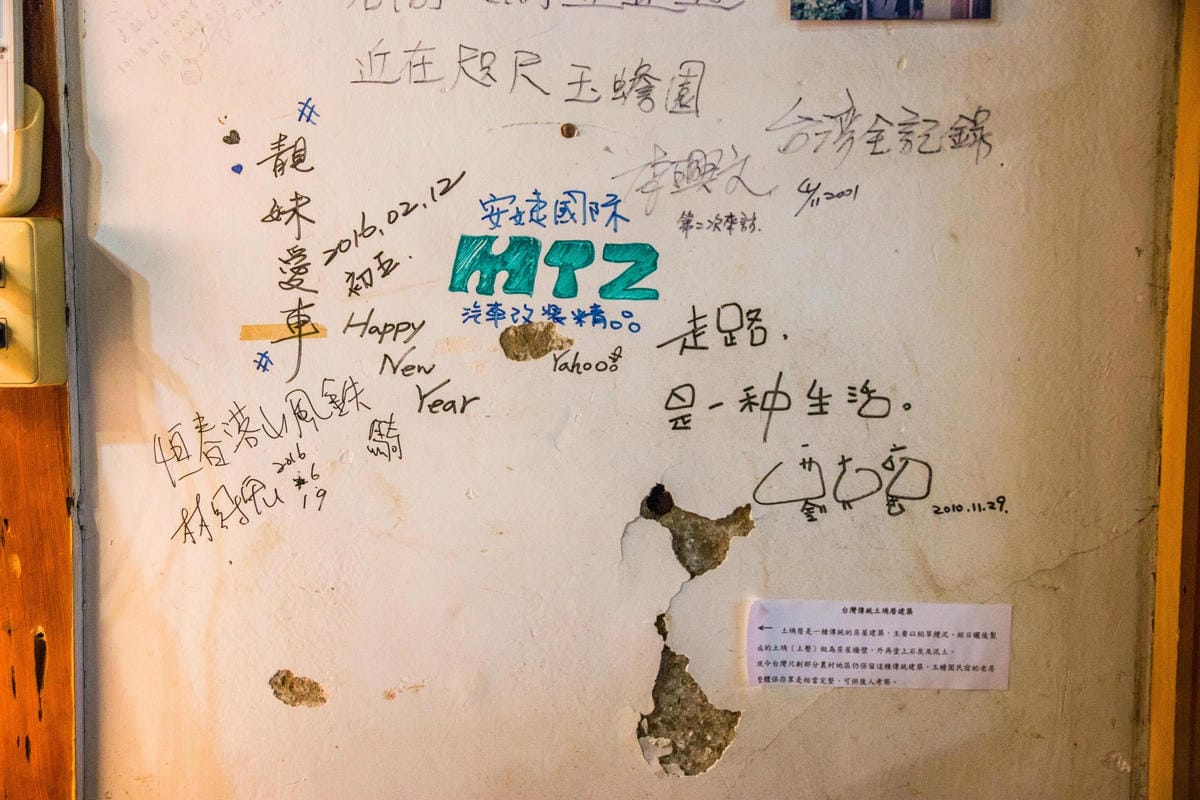 近在咫尺 玉蟾園
台灣全記錄
李興文
4/11 2001
第二次來訪.
#靚妹愛車#
2016.02.12
初五.
Happy
New
Year
安婕國际
MTZ
汽車改裝精品
Yahoo
走路.
是一种生活。
2010.11.29.
恒春落山風鉄
騎
2016
6
19
台灣傳統土埆厝建築
← 土埆厝是一種傳統的房屋建築，主要以稻草攪泥，經日曬後製
成的土埆（土墼）做為房屋牆壁，外再塗上石灰及泥土。
現今台灣只剩部分農村地區仍保留這種傳統建築，玉蟾園民宿的老房
整體保存算是相當完整，可供後人考察。